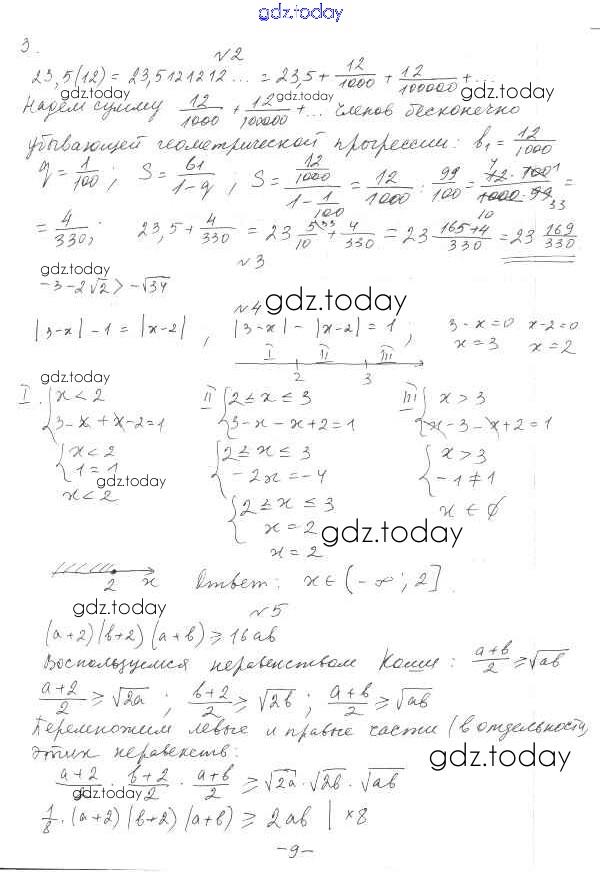 gdz.today
3.
№2
23,5(12) = 23,5121212... = 23,5 + 12/1000 + 12/100000 + ...
gdz.today
Найдем сумму 12/1000 + 12/100000 + ... членов бесконечно
gdz.today
убывающей геометрической прогрессии: b₁ = 12/1000
q = 1/100; S = b1/(1-q); S = (12/1000)/(1 - 1/100) = 12/1000 : 99/100 = 12·100/1000·99 =
= 4/330; 23,5 + 4/330 = 23 5/10 + 4/330 = 23 (165+4)/330 = 23 169/330
№3
gdz.today
-3-2√2 > -√34
№4
gdz.today
|3-x| - 1 = |x-2|, |3-x| - |x-2| = 1; 3-x=0 x-2=0
x=3 x=2
I II III
2 3
gdz.today
I. { x<2 II { 2≤x≤3 III { x>3
3-x+x-2=1 3-x-x+2=1 x-3-x+2=1
{ x<2 { 2≤x≤3 { x>3
1=1 -2x=-4 -1≠1
gdz.today
x<2 { 2≤x≤3 x∈∅
x=2
gdz.today
x=2
2 x Ответ: x∈(-∞; 2].
gdz.today
№5
(a+2)(b+2)(a+b) ≥ 16ab
Воспользуемся неравенством Коши: (a+b)/2 ≥ √ab
gdz.today
(a+2)/2 ≥ √2a; (b+2)/2 ≥ √2b; (a+b)/2 ≥ √ab
Перемножим левые и правые части (в отдельности)
этих неравенств:
gdz.today
(a+2)/2 · (b+2)/2 · (a+b)/2 ≥ √2a · √2b · √ab
gdz.today
1/8 · (a+2)(b+2)(a+b) ≥ 2ab | ×8
-9-
gdz.today